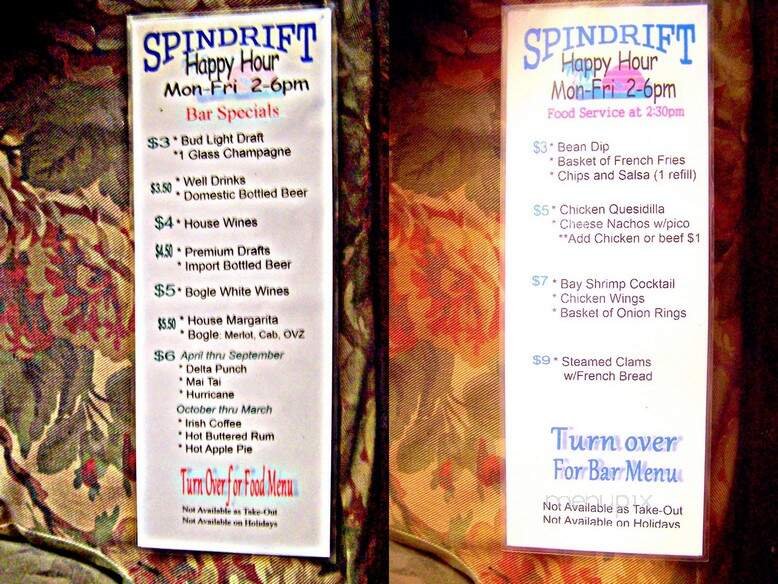 SPINDRIFT
Happy Hour
Mon-Fri 2-6pm
Bar Specials
$3 * Bud Light Draft
*1 Glass Champagne
$3.50 * Well Drinks
* Domestic Bottled Beer
$4 * House Wines
$4.50 * Premium Drafts
* Import Bottled Beer
$5 * Bogle White Wines
$5.50 * House Margarita
* Bogle: Merlot, Cab, OVZ
$6 April thru September
* Delta Punch
* Mai Tai
* Hurricane
October thru March
* Irish Coffee
* Hot Buttered Rum
* Hot Apple Pie
Turn Over for Food Menu
Not Available as Take-Out
Not Available on Holidays
SPINDRIFT
Happy Hour
Mon-Fri 2-6pm
Food Service at 2:30pm
$3 * Bean Dip
* Basket of French Fries
* Chips and Salsa (1 refill)
$5 * Chicken Quesidilla
* Cheese Nachos w/pico
**Add Chicken or beef $1
$7 * Bay Shrimp Cocktail
* Chicken Wings
* Basket of Onion Rings
$9 * Steamed Clams
w/French Bread
Turn over
For Bar Menu
menupix
Not Available as Take-Out
Not Available on Holidays